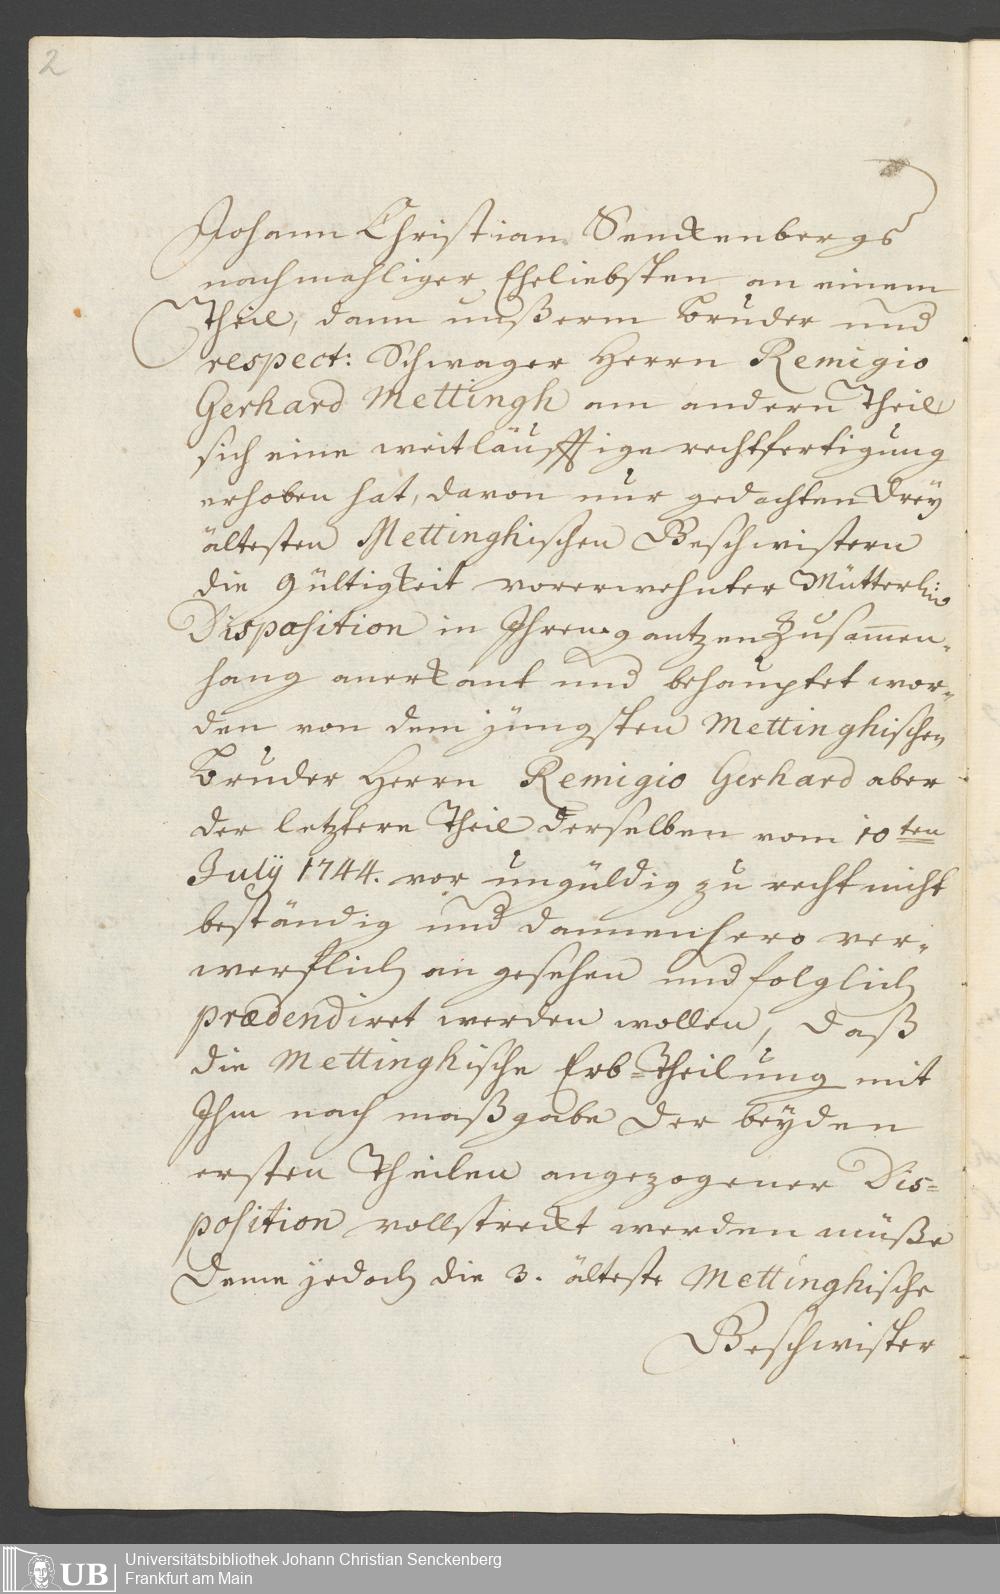 2
Johann Christian Senckenbergs
nachmahliger Eheliebsten an einem
Theil, dann unßerm Bruder und
respect: Schwager Herrn Remigio
Gerhard Mettingh am andern Theil
sich eine weitläuffige rechtfertigung
erhoben hat, davon nur gedachten Drey
ältesten Mettinghischen Geschwistern
die Gültigkeit vorerwehnter Mütterlin
Disposition in Ihrem gantzen Zusam̅en-
hang anerkant und behauptet wor-
den von dem jüngsten Mettinghischen
Bruder Herrn Remigio Gerhard aber
der letztere Theil derselben vom 10ten
July 1744. vor ungüldig zu recht nicht
beständig und dannenhero ver-
werflich angesehen und folglich
prædendiret werden wollen, daß
die Mettinghische Erb-Theilung mit
Ihm nach maßgabe der beyden
ersten Theilen angezogener Dis-
position vollstreckt werden müße
Deme jedoch die 3. älteste Mettinghische
Geschwister
UB
Universitätsbibliothek Johann Christian Senckenberg
Frankfurt am Main